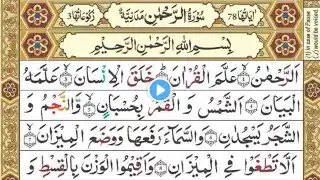 اٰيَاتُهَا 78
سُوْرَةُ الرَّحْمٰنِ مَدَنِيَّةٌ
رُكُوْعَاتُهَا 3
بِسْمِ اللّٰهِ الرَّحْمٰنِ الرَّحِيْمِ
اَلرَّحْمٰنُ عَلَّمَ الْقُرْاٰنَ خَلَقَ الْاِنْسَانَ عَلَّمَهُ
الْبَيَانَ اَلشَّمْسُ وَ الْقَمَرُ بِحُسْبَانٍ وَّالنَّجْمُ وَ
الشَّجَرُ يَسْجُدٰنِ وَالسَّمَآءَ رَفَعَهَا وَوَضَعَ الْمِيْزَانَ
اَلَّا تَطْغَوْا فِي الْمِيْزَانِ وَاَقِيْمُوا الْوَزْنَ بِالْقِسْطِ وَ